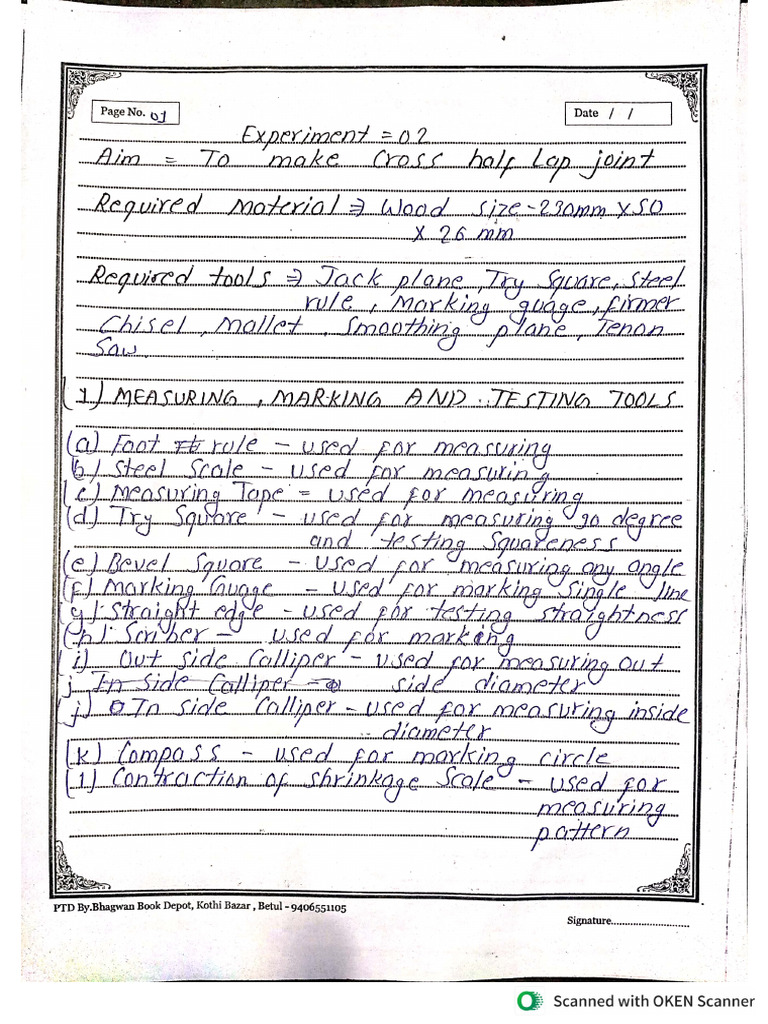 Page No. 01
Date / /
Experiment = 02
Aim = To make Cross half Lap joint
Required Material ⇒ Wood size-230mm X 50
X 26 mm
Required tools ⇒ Jack plane, Try Square, Steel
rule, Marking guage, firmer
Chisel, Mallet, Smoothing plane, Tenon
Saw.
(1) MEASURING, MARKING AND TESTING TOOLS
(a) Foot rule - used for measuring
(b) Steel Scale - used for measuring
(c) Measuring Tape = used for measuring
(d) Try Square - used for measuring 90 degree
and testing Squareness
(e) Bevel Square - used for measuring any angle
(f) Marking Guage - used for marking Single line
(g) Straight edge - used for testing straightness
(h) Scriber - used for marking
(i) Out side Calliper - used for measuring out
j In side Calliper - side diameter
(j) In side Calliper - used for measuring inside
diameter
(k) Compass - used for marking circle
(l) Contraction of shrinkage Scale - used for
measuring
pattern
PTD By.Bhagwan Book Depot, Kothi Bazar , Betul - 9406551105
Signature...........................
Scanned with OKEN Scanner